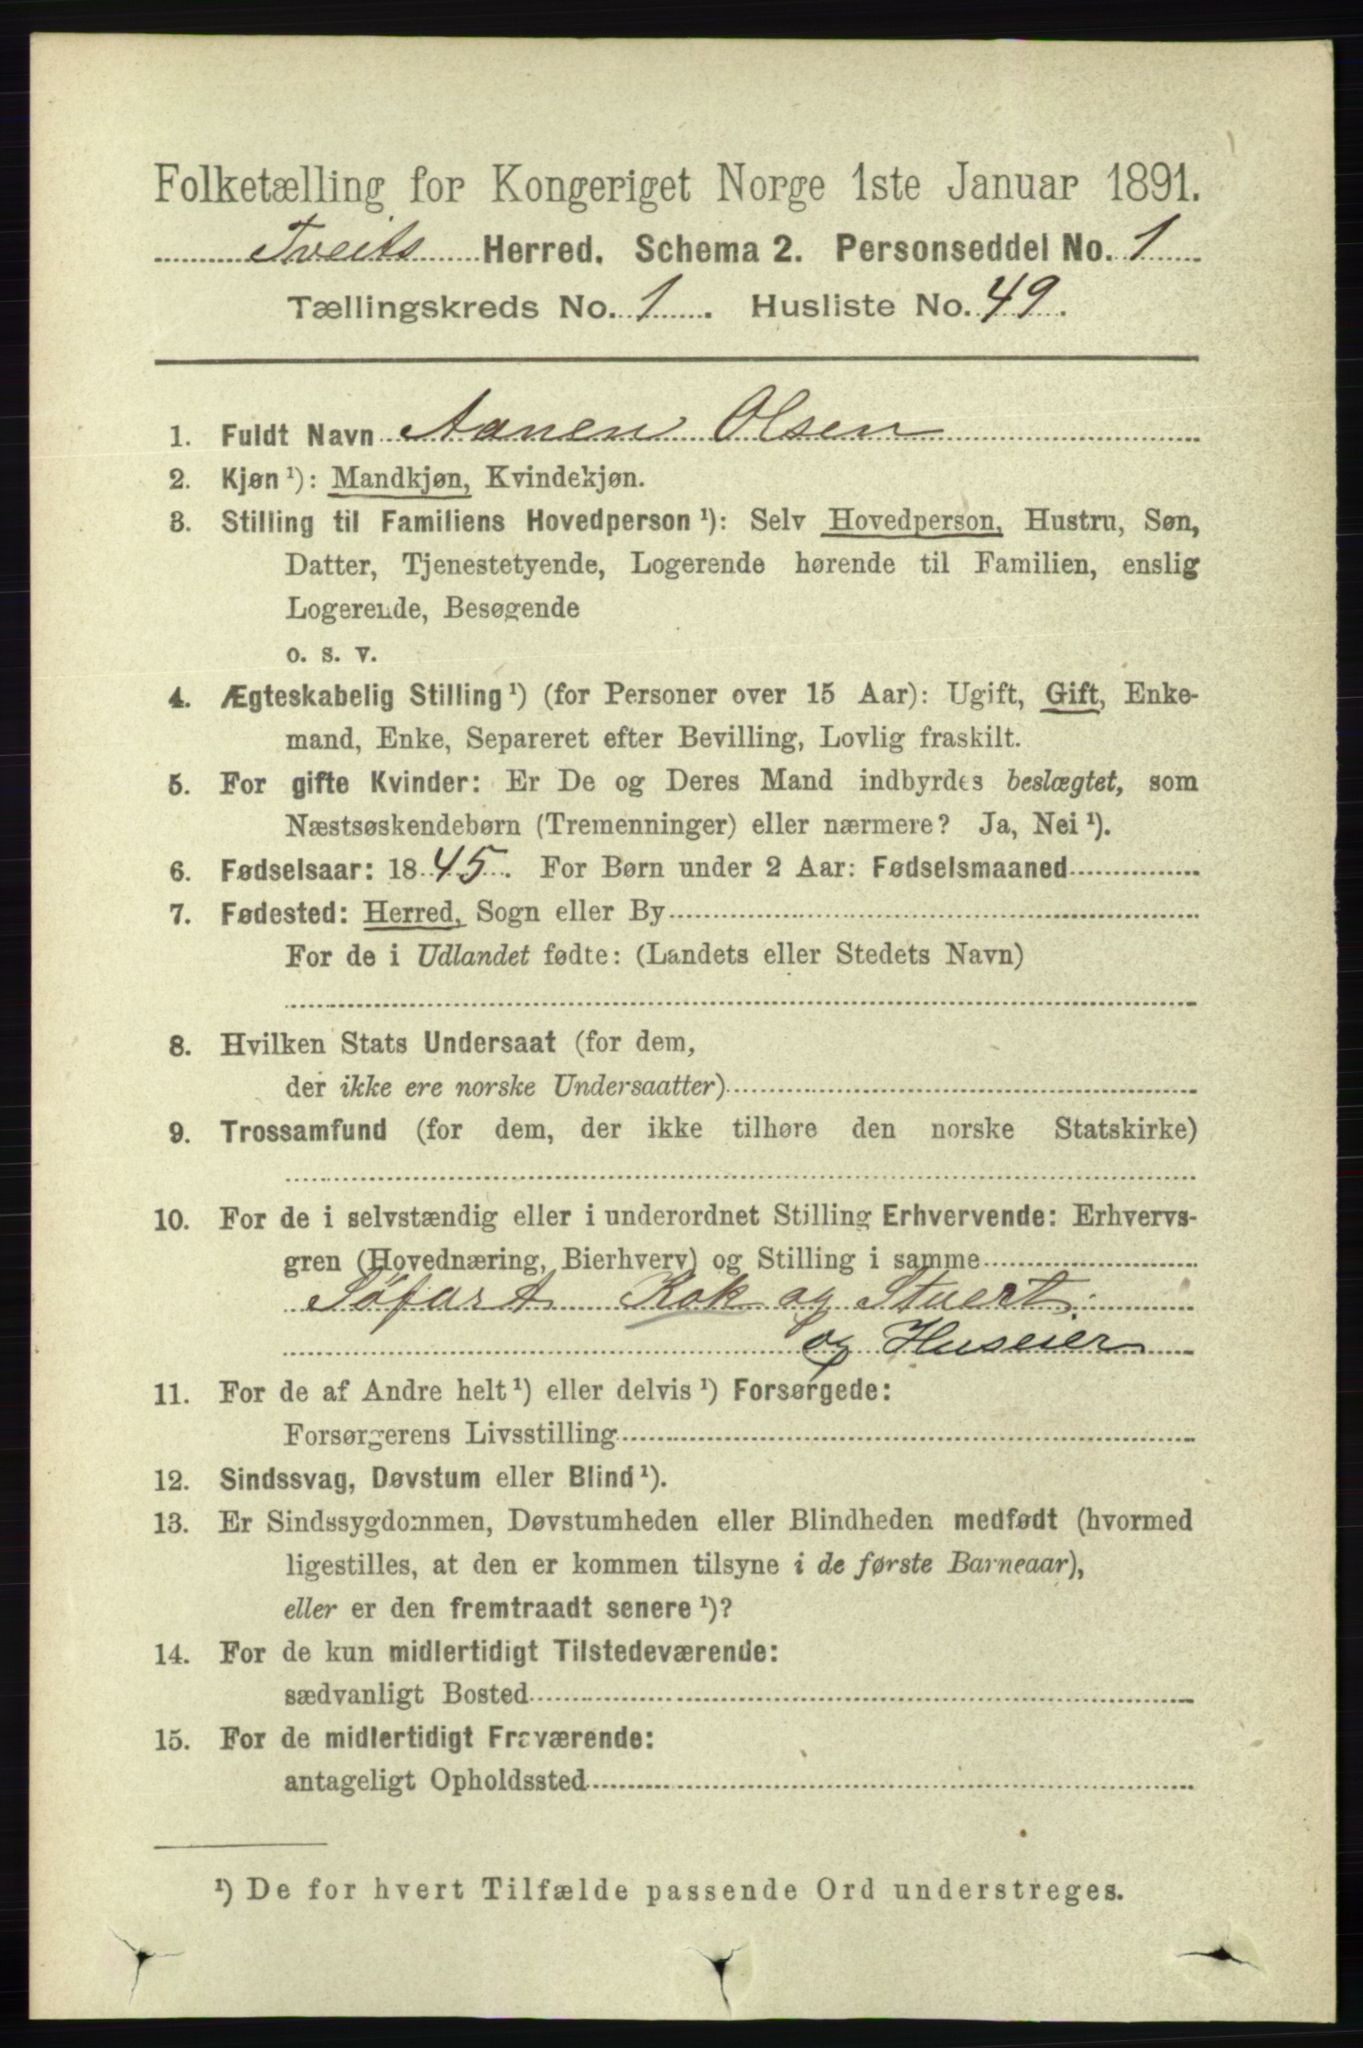 Folketælling for Kongeriget Norge 1ste Januar 1891.
Tveits Herred. Schema 2. Personseddel No. 1
Tællingskreds No. 1. Husliste No. 49.
1. Fuldt Navn Aanen Olsen
2. Kjøn¹): Mandkjøn, Kvindekjøn.
3. Stilling til Familiens Hovedperson¹): Selv Hovedperson, Hustru, Søn,
Datter, Tjenestetyende, Logerende hørende til Familien, enslig
Logerende, Besøgende
o. s. v.
4. Ægteskabelig Stilling¹) (for Personer over 15 Aar): Ugift, Gift, Enke-
mand, Enke, Separeret efter Bevilling, Lovlig fraskilt.
5. For gifte Kvinder: Er De og Deres Mand indbyrdes beslægtet, som
Næstsøskendebørn (Tremenninger) eller nærmere? Ja, Nei¹).
6. Fødselsaar: 1845. For Børn under 2 Aar: Fødselsmaaned
7. Fødested: Herred, Sogn eller By
For de i Udlandet fødte: (Landets eller Stedets Navn)
8. Hvilken Stats Undersaat (for dem,
der ikke ere norske Undersaatter)
9. Trossamfund (for dem, der ikke tilhøre den norske Statskirke)
10. For de i selvstændig eller i underordnet Stilling Erhvervende: Erhvervs-
gren (Hovednæring, Bierhverv) og Stilling i samme
Søfart Kok og Stuert
og Huseier
11. For de af Andre helt¹) eller delvis¹) Forsørgede:
Forsørgerens Livsstilling
12. Sindssvag, Døvstum eller Blind¹).
13. Er Sindssygdommen, Døvstumheden eller Blindheden medfødt (hvormed
ligestilles, at den er kommen tilsyne i de første Barneaar),
eller er den fremtraadt senere¹)?
14. For de kun midlertidigt Tilstedeværende:
sædvanligt Bosted
15. For de midlertidigt Fraværende:
antageligt Opholdssted
¹) De for hvert Tilfælde passende Ord understreges.